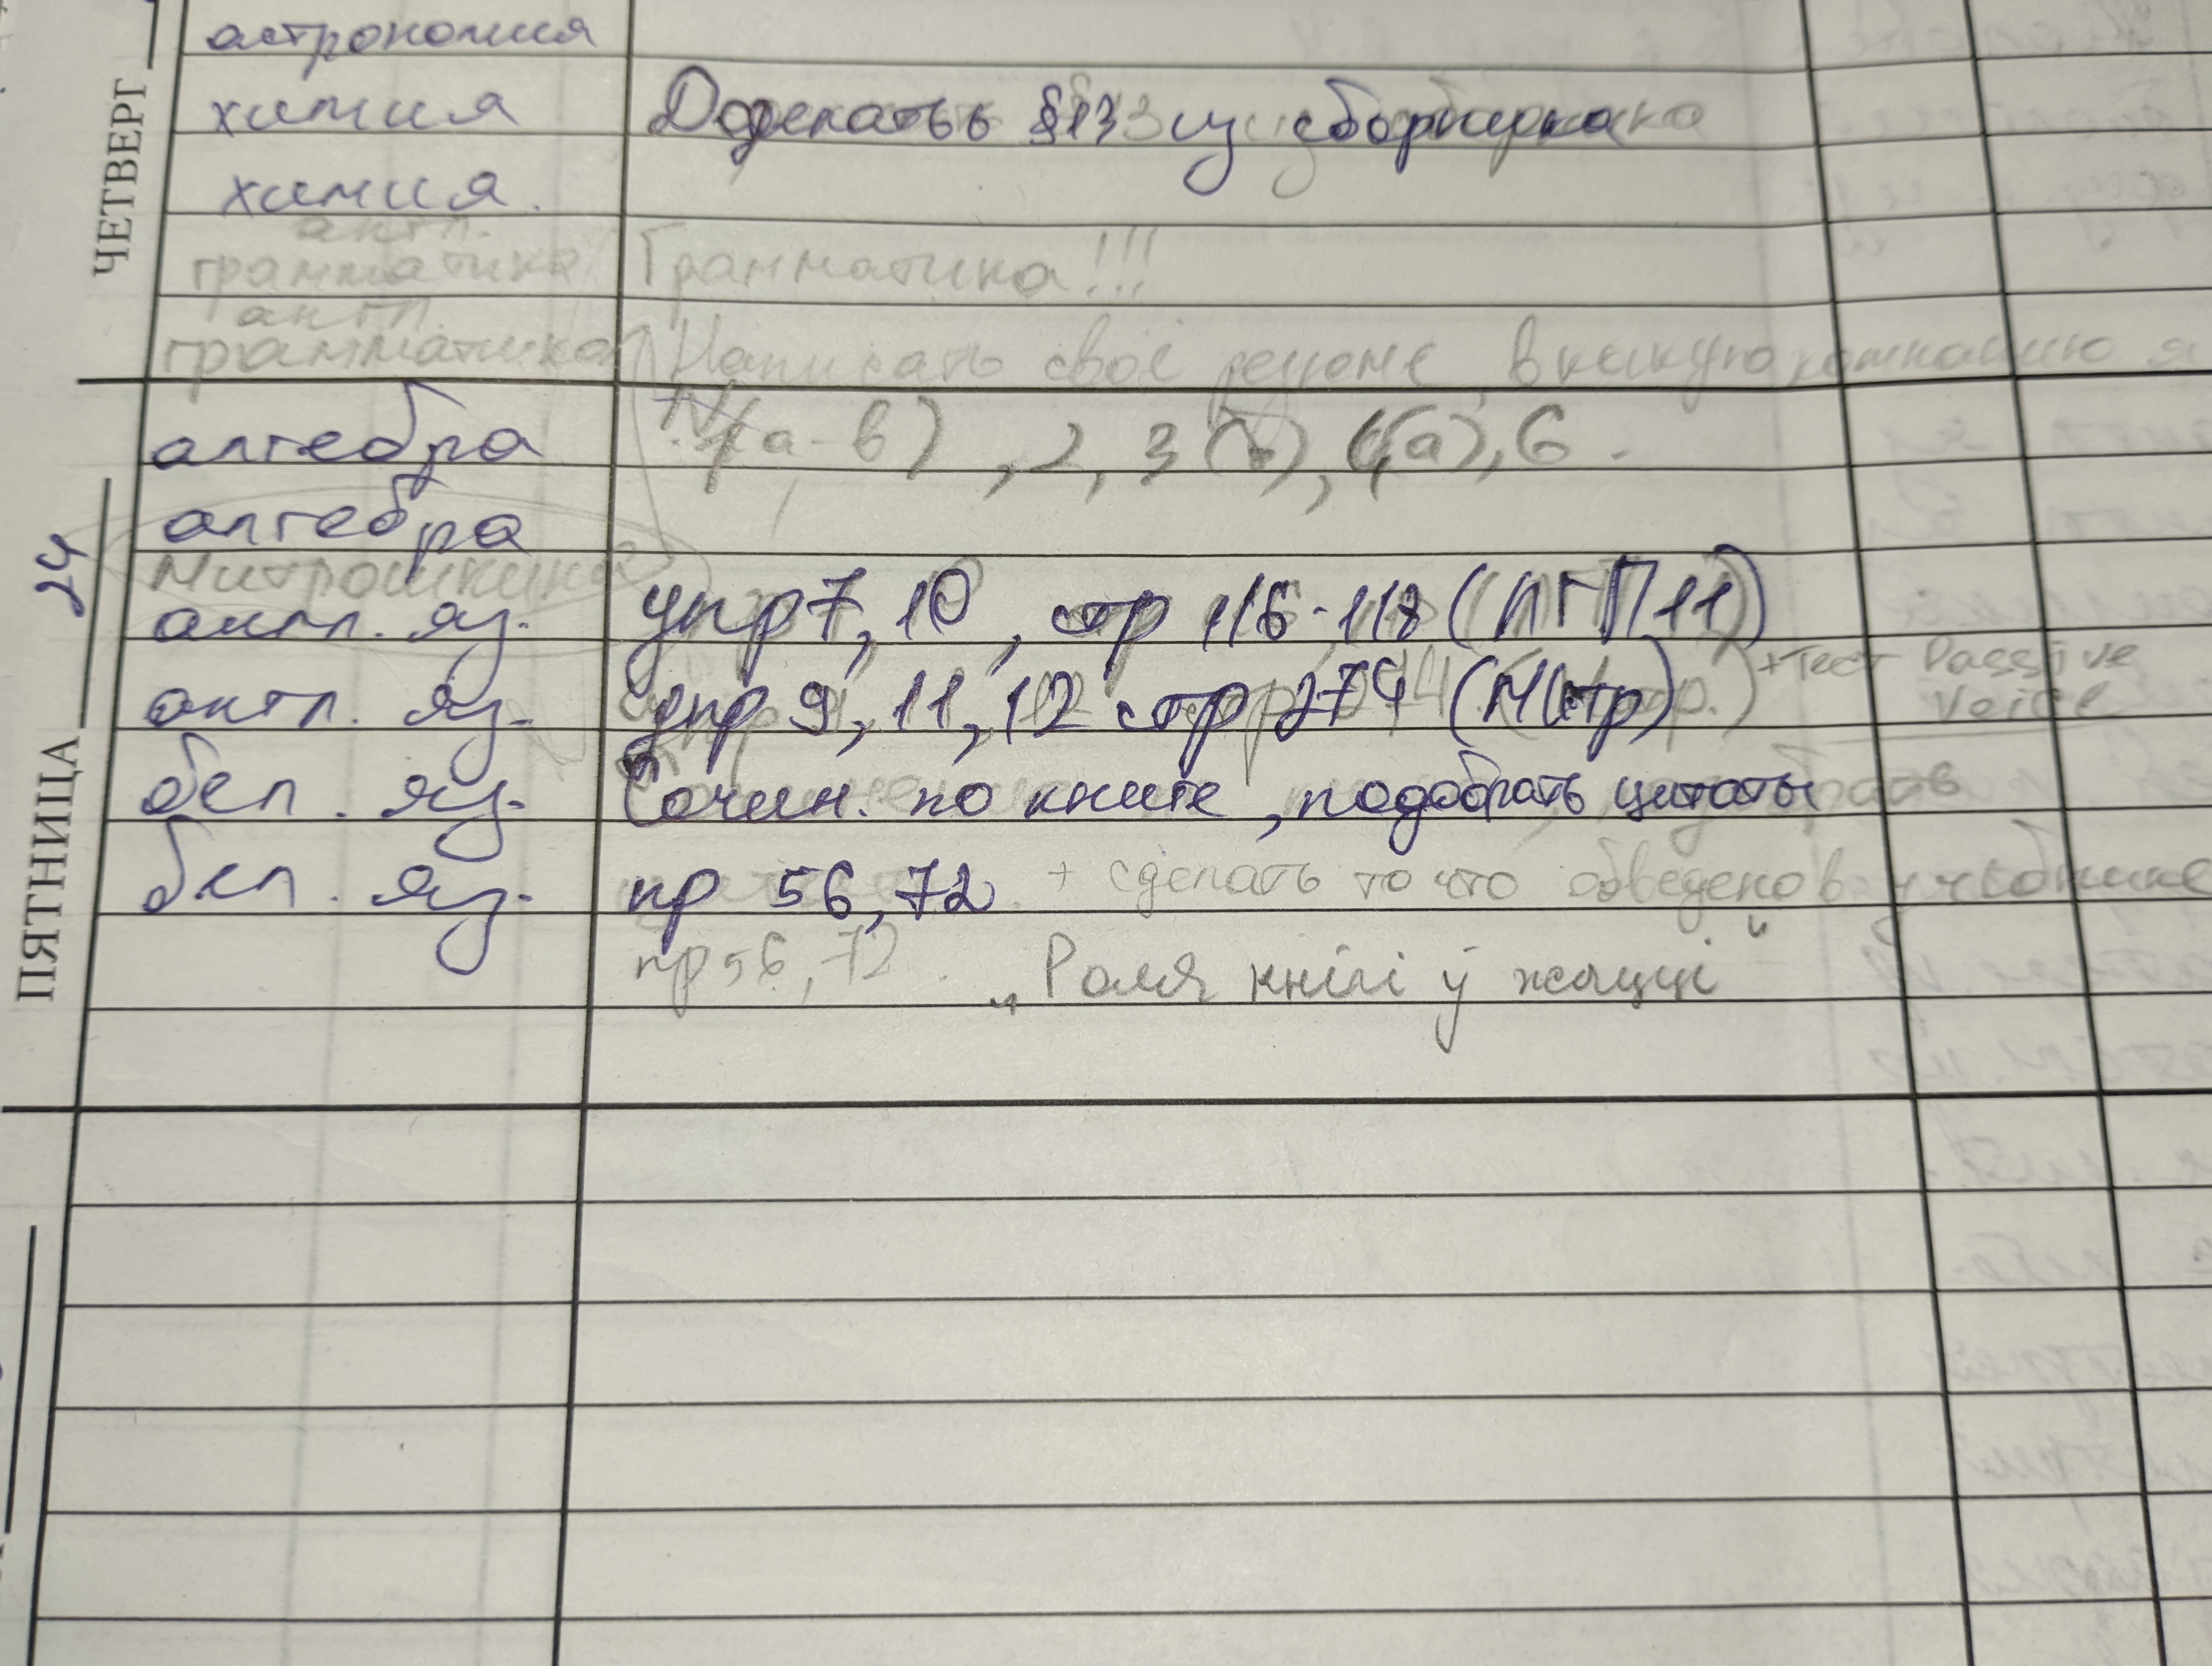 ЧЕТВЕРГ
астрономия
химия Доделать §13 из сборника
химия.
англ.
грамматика Грамматика!!!
англ.
грамматика Написать своё резюме, в какую компанию я
ПЯТНИЦА 24
алгебра (а-в), 2, 3 (а), 6.
алгебра
Митрошкина
англ. яз. упр 7, 10, стр 116-118 (ЛГП11)
+ тест Passive
англ. яз. упр 9, 11, 12 стр 274 (Митр)
Voice
бел. яз. Сочин. по книге, подобрать цитаты
бел. яз. пр 56, 72 + сделать то что обведено в учебнике
пр 56, 72. „Роля кнігі ў жыцці"